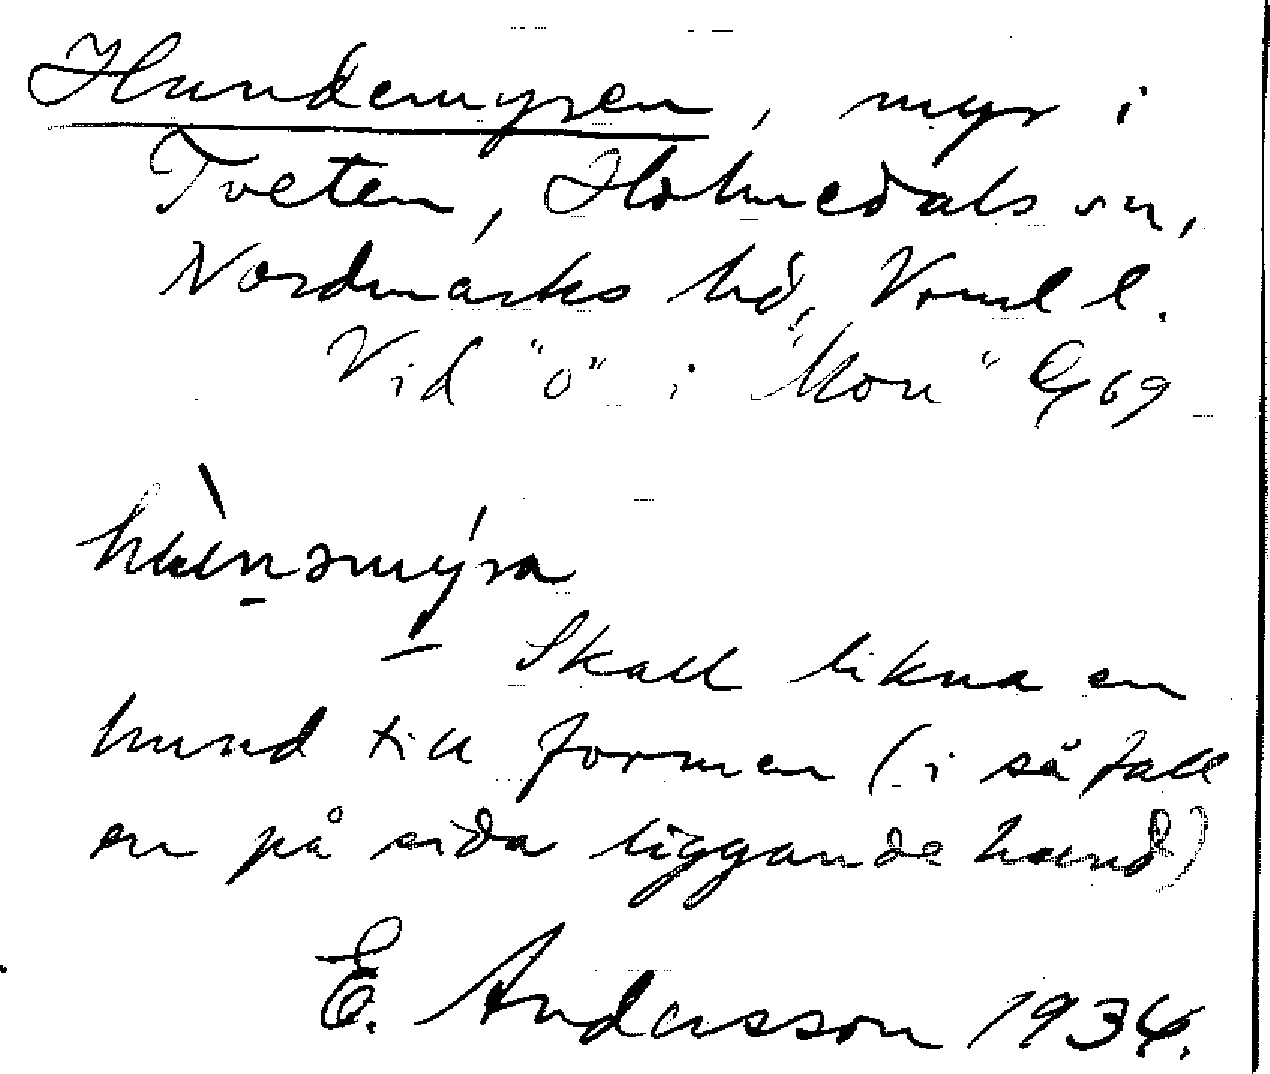 Hundemyren, myr i
Tveten, Holmedals sn,
Nordmarks hd, Vrml l.
Vid "o" i "Mon" 69
hùnəmýra
Skall likna en
hund till formen (i så fall
en på sida liggande hund)
E. Andersson 1934.